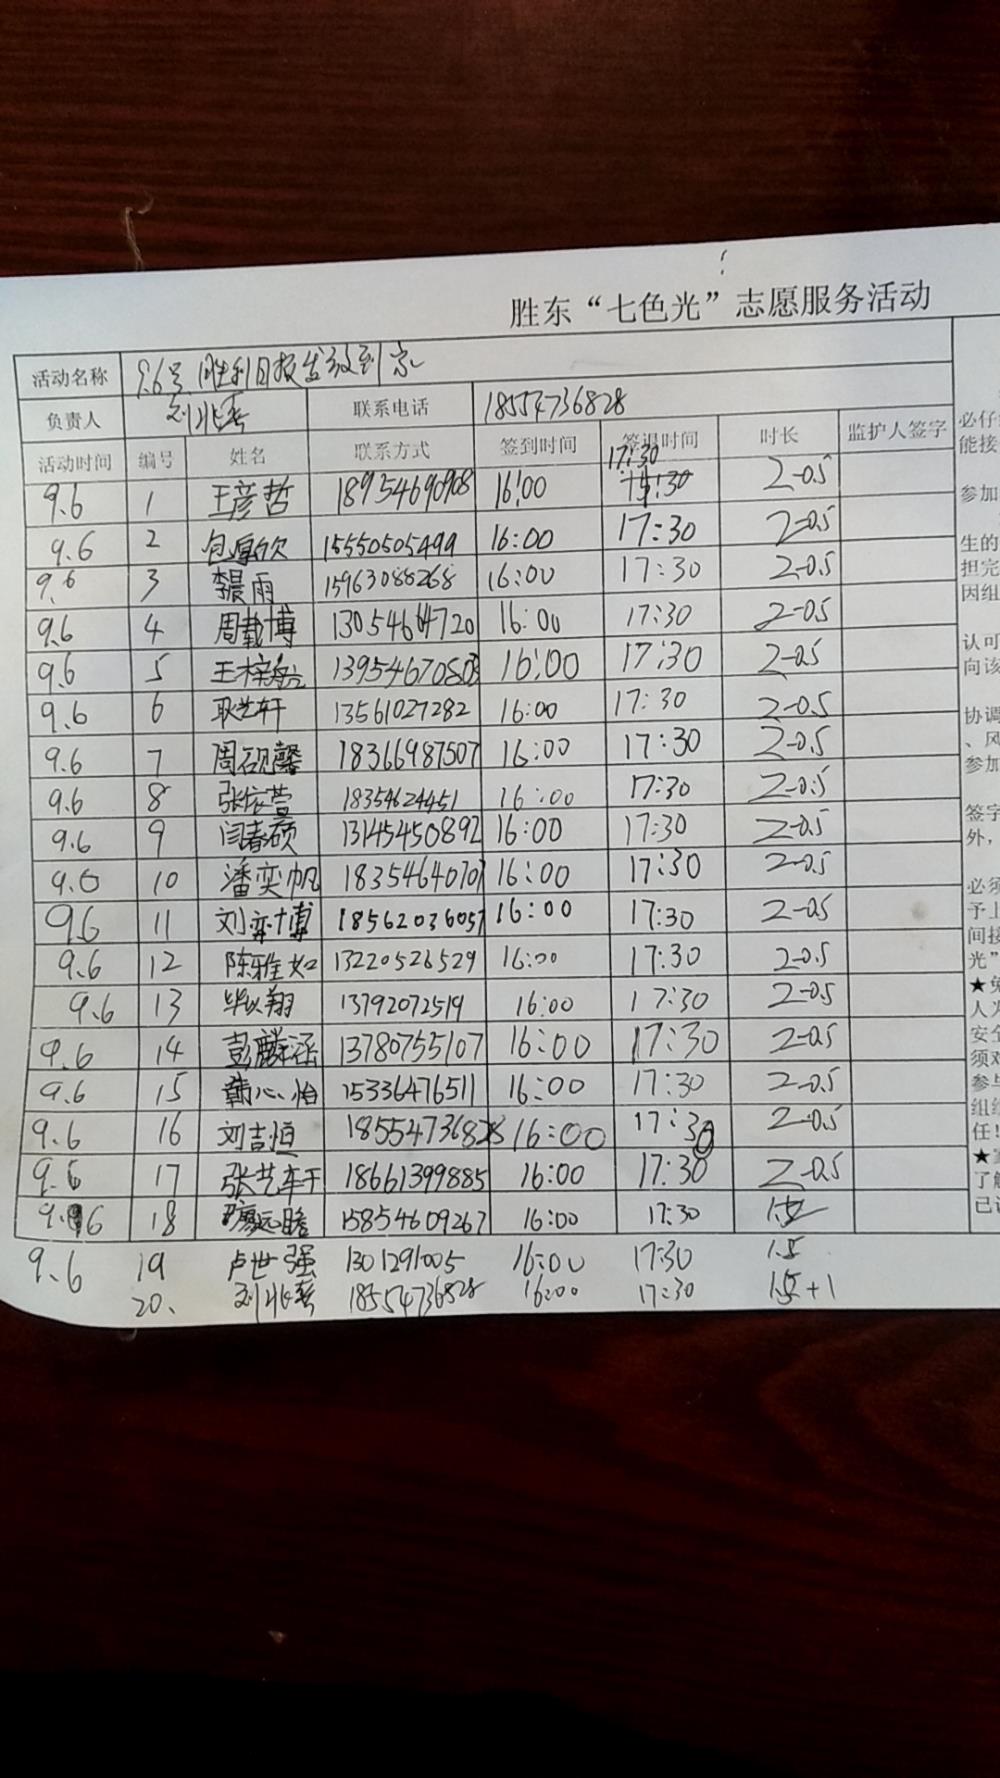 胜东“七色光”志愿服务活动
活动名称 9.6号 胜利日报发放到家
负责人 联系电话 18554736828
活动时间 编号 姓名 联系方式 签到时间 签退时间 时长 监护人签字
17:30
9.6 1 王彦哲 18954690908 16:00 2-0.5
9.6 2 15550505499 16:00 17:30 2-0.5
9.6 3 李晨雨 15963088268 16:00 17:30 2-0.5
9.6 4 周载博 13054664720 16:00 17:30 2-0.5
9.6 5 16:00 17:30 2-0.5
9.6 6 耿艺轩 13561027282 16:00 17:30 2-0.5
9.6 7 周砚馨 18366987507 16:00 17:30 2-0.5
9.6 8 18354624451 16:00 17:30 2-0.5
9.6 9 闫春硕 13145450892 16:00 17:30 2-0.5
9.6 10 潘奕帆 18354640707 16:00 17:30 2-0.5
9.6 11 刘弈博 18562036057 16:00 17:30 2-0.5
9.6 12 陈雅如 13220526529 16:00 17:30 2-0.5
9.6 13 毕以翔 13792072519 16:00 17:30 2-0.5
9.6 14 彭麟涵 13780755107 16:00 17:30 2-0.5
9.6 15 15336476511 16:00 17:30 2-0.5
9.6 16 刘吉恒 18554736828 16:00 17:30 2-0.5
9.6 17 18661399885 16:00 17:30 2-0.5
9.6 18 廖远瞻 15854609267 16:00 17:30
9.6 19 卢世强 1301291005 16:00 17:30 1.5
20. 18554736828 16:00 17:30 1.5+1
必仔
能接
参加
生的
担完
因组
认可
向该
协调
、风
参加
签字
外，
必须
予上
间接
光”
★免
人为
安全
须对
参与
组织
任！
★
了解
已认